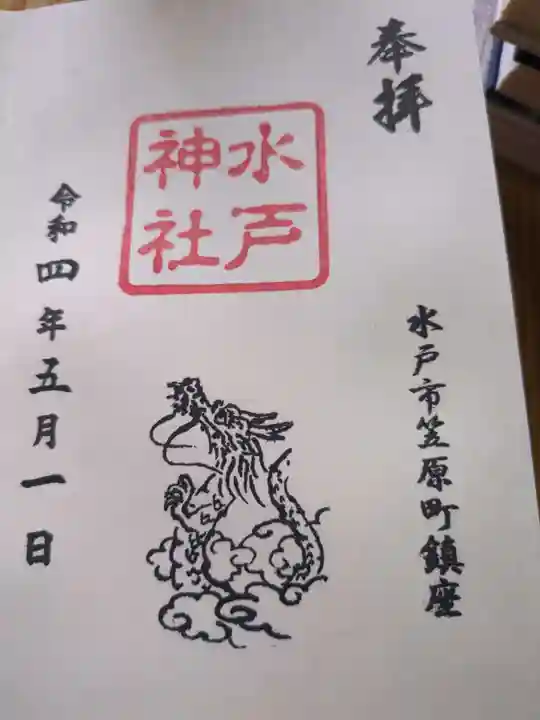 奉拝
水戸
神社
水戸市笠原町鎮座
令和四年五月一日